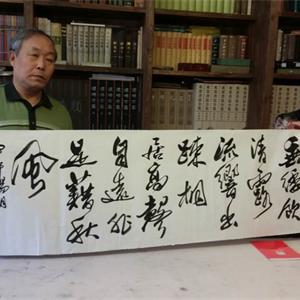 垂緌飲
清露
流響出
疎桐
居高聲
自遠非
是藉秋
風